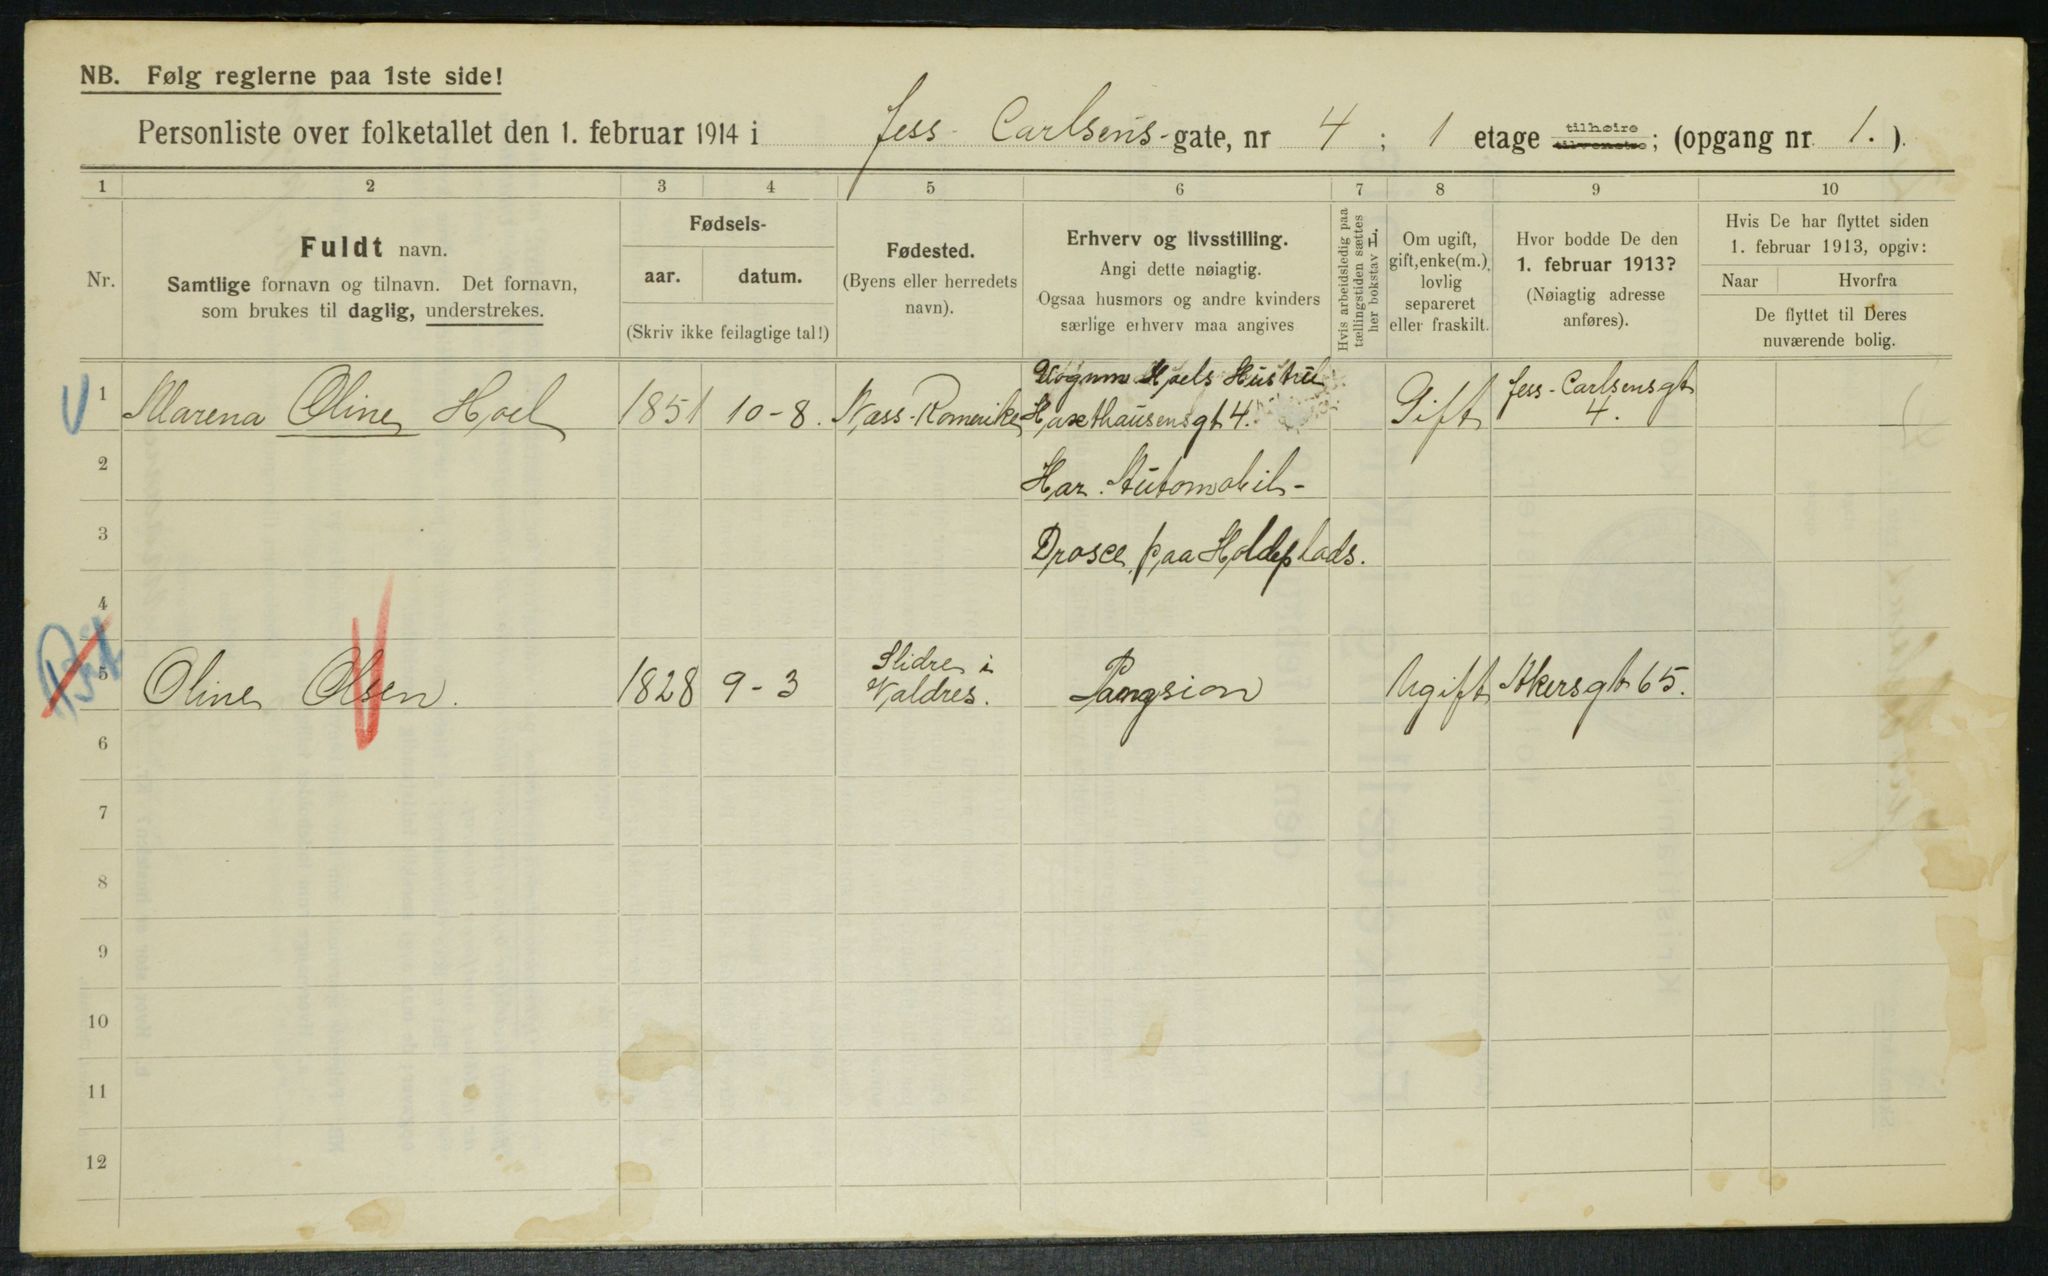 NB. Følg reglerne paa 1ste side!
Personliste over folketallet den 1. februar 1914 i Jess-Carlsens-gate, nr 4; 1 etage tilhøire tilvenstre; (opgang nr. 1.).
1 2 3 4 5 6 7 8 9 10
Nr.
Fuldt navn.
Samtlige fornavn og tilnavn. Det fornavn,
som brukes til daglig, understrekes.
Fødsels-
aar.
datum.
(Skriv ikke feilagtige tal!)
Fødested.
(Byens eller herredets
navn).
Erhverv og livsstilling.
Angi dette nøiagtig.
Ogsaa husmørs og andre kvinders
særlige erhverv maa angives
Hvis arbeidsledig paa
tællingstiden sættes
her bokstav L.
Om ugift,
gift, enke(m.),
lovlig
separeret
eller fraskilt.
Hvor bodde De den
1. februar 1913?
(Nøiagtig adresse
anføres).
Hvis De har flyttet siden
1. februar 1913, opgiv:
Naar
Hvorfra
De flyttet til Deres
nuværende bolig.
1 Marena Oline Hoel 1851 10-8. Næss-Romerike
Hoels Hustru
Haxthausensgt 4.
Gift
Jess-Carlsensgt
4.
2 Har Automobil-
3 Drosce paa Holdeplads.
4
5 Oline Olsen. 1828 9-3
Slidre i
Valdres.
Pangsion
Ugift
Akersgt 65.
6
7
8
9
10
11
12